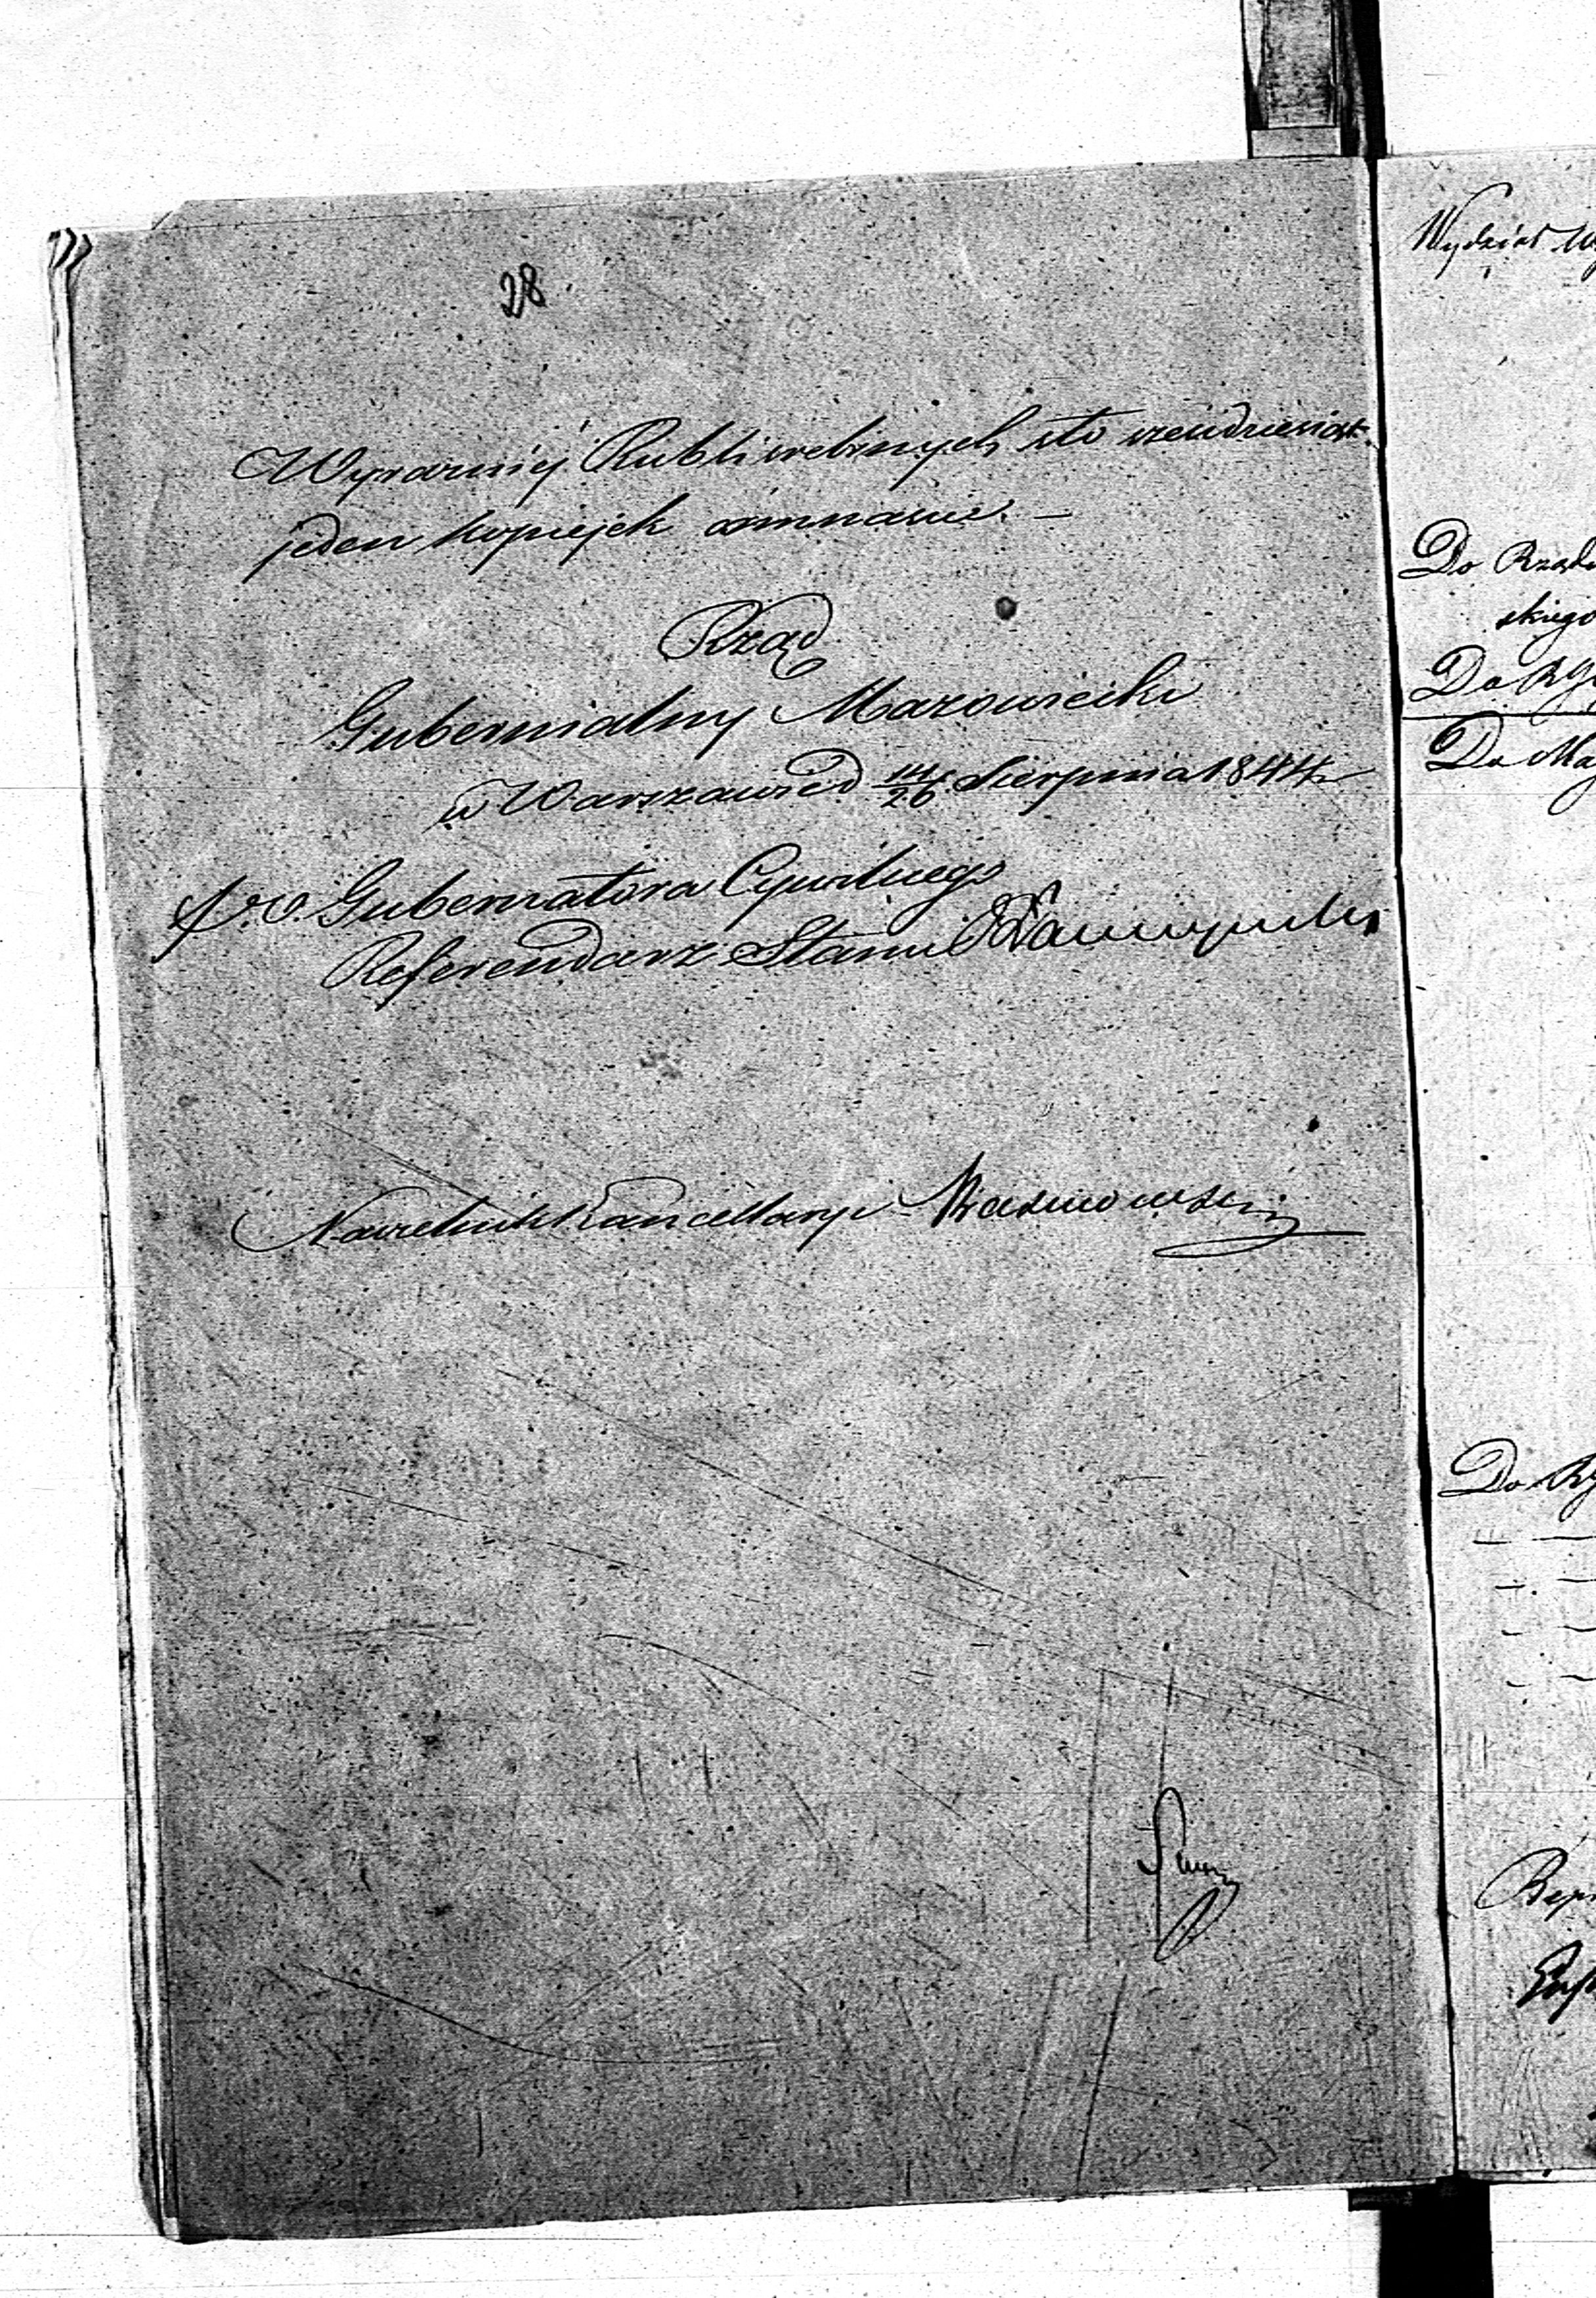 28
Wyraźniej Rubli srebrnych sto sześćdziesiąt
jeden kopiejek ośmnaście. —
Rząd
Gubernialny Mazowiecki
w Warszawie d 14/26 Sierpnia 1844 r
p.o. Gubernatora Cywilnego
Referendarz Stanu
Naczelnik Kancellaryi
Wydział
Do Rządu
skiego
Do
Do
Do